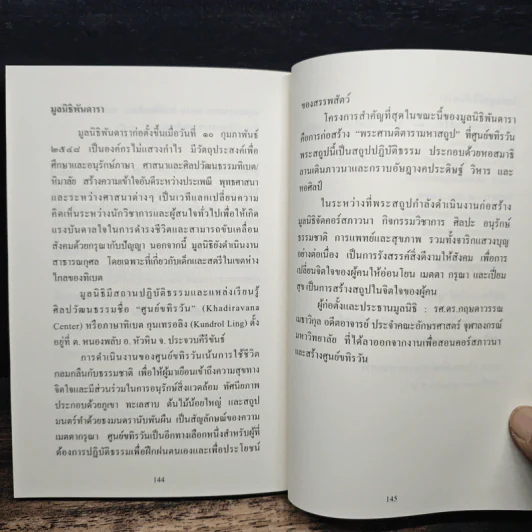 มูลนิธิพันดารา
มูลนิธิพันดาราก่อตั้งขึ้นเมื่อวันที่ ๑๐ กุมภาพันธ์
๒๕๔๘ เป็นองค์กรไม่แสวงกำไร มีวัตถุประสงค์เพื่อ
ศึกษาและอนุรักษ์ภาษา ศาสนาและศิลปวัฒนธรรมทิเบต/
หิมาลัย สร้างความเข้าใจอันดีระหว่างประเพณี พุทธศาสนา
และระหว่างศาสนาต่างๆ เป็นเวทีแลกเปลี่ยนความ
คิดเห็นระหว่างนักวิชาการและผู้สนใจทั่วไปเพื่อให้เกิด
แรงบันดาลใจในการดำรงชีวิตและสามารถขับเคลื่อน
สังคมด้วยกรุณากับปัญญา นอกจากนี้ มูลนิธิยังดำเนินงาน
สาธารณกุศล โดยเฉพาะที่เกี่ยวกับเด็กและสตรีในเขตห่าง
ไกลของทิเบต
มูลนิธิมีสถานปฏิบัติธรรมและแหล่งเรียนรู้
ศิลปวัฒนธรรมชื่อ “ศูนย์ขทิรวัน” (Khadiravana
Center) หรือภาษาทิเบต คุนเทรอลิง (Kundrol Ling) ตั้ง
อยู่ที่ ต. หนองพลับ อ. หัวหิน จ. ประจวบคีรีขันธ์
การดำเนินงานของศูนย์ขทิรวันเน้นการใช้ชีวิต
กลมกลืนกับธรรมชาติ เพื่อให้ผู้มาเยือนเข้าถึงความสุขทาง
จิตใจและมีส่วนร่วมในการอนุรักษ์สิ่งแวดล้อม ทัศนียภาพ
ประกอบด้วยภูเขา ทะเลสาบ ต้นไม้น้อยใหญ่ และสถูป
มนตร์ทำด้วยธงมนตรานับพันผืน เป็นสัญลักษณ์ของความ
เมตตากรุณา ศูนย์ขทิรวันเป็นอีกทางเลือกหนึ่งสำหรับผู้ที่
ต้องการปฏิบัติธรรมเพื่อฝึกฝนตนเองและเพื่อประโยชน์
144
ของสรรพสัตว์
โครงการสำคัญที่สุดในขณะนี้ของมูลนิธิพันดารา
คือการก่อสร้าง “พระศานติตารามหาสถูป” ที่ศูนย์ขทิรวัน
พระสถูปนี้เป็นสถูปปฏิบัติธรรม ประกอบด้วยหอสมาธิ
ลานเดินภาวนาและกราบอัษฎางคประดิษฐ์ วิหาร และ
หอศิลป์
ในระหว่างที่พระสถูปกำลังดำเนินงานก่อสร้าง
มูลนิธิจัดคอร์สภาวนา กิจกรรมวิชาการ ศิลปะ อนุรักษ์
ธรรมชาติ การแพทย์และสุขภาพ รวมทั้งจาริกแสวงบุญ
อย่างต่อเนื่อง เป็นการรังสรรค์สิ่งดีงามให้สังคม เพื่อการ
เปลี่ยนจิตใจของผู้คนให้อ่อนโยน เมตตา กรุณา และเปี่ยม
สุข เป็นการสร้างสถูปในจิตใจของผู้คน
ผู้ก่อตั้งและประธานมูลนิธิ : รศ.ดร.กฤษดาวรรณ
เมธาวิกุล อดีตอาจารย์ ประจำคณะอักษรศาสตร์ จุฬาลงกรณ์
มหาวิทยาลัย ที่ได้ลาออกจากงานเพื่อสอนคอร์สภาวนา
และสร้างศูนย์ขทิรวัน
145